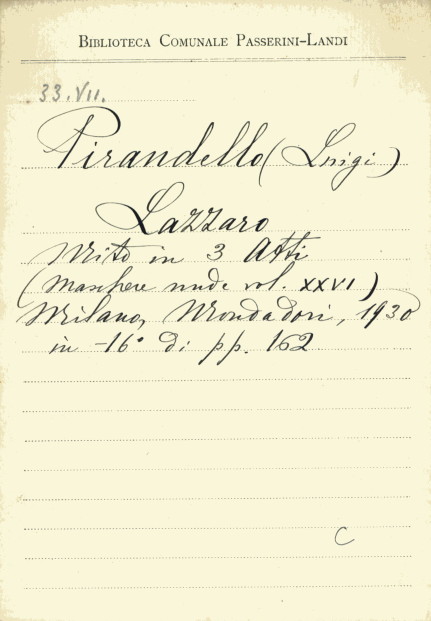 BIBLIOTECA COMUNALE PASSERINI-LANDI
33.VII.
Pirandello (Luigi)
Lazzaro
Mito in 3 Atti
(Maschere nude vol. XXVI)
Milano, Mondadori, 1930
in -16° di pp. 162
C